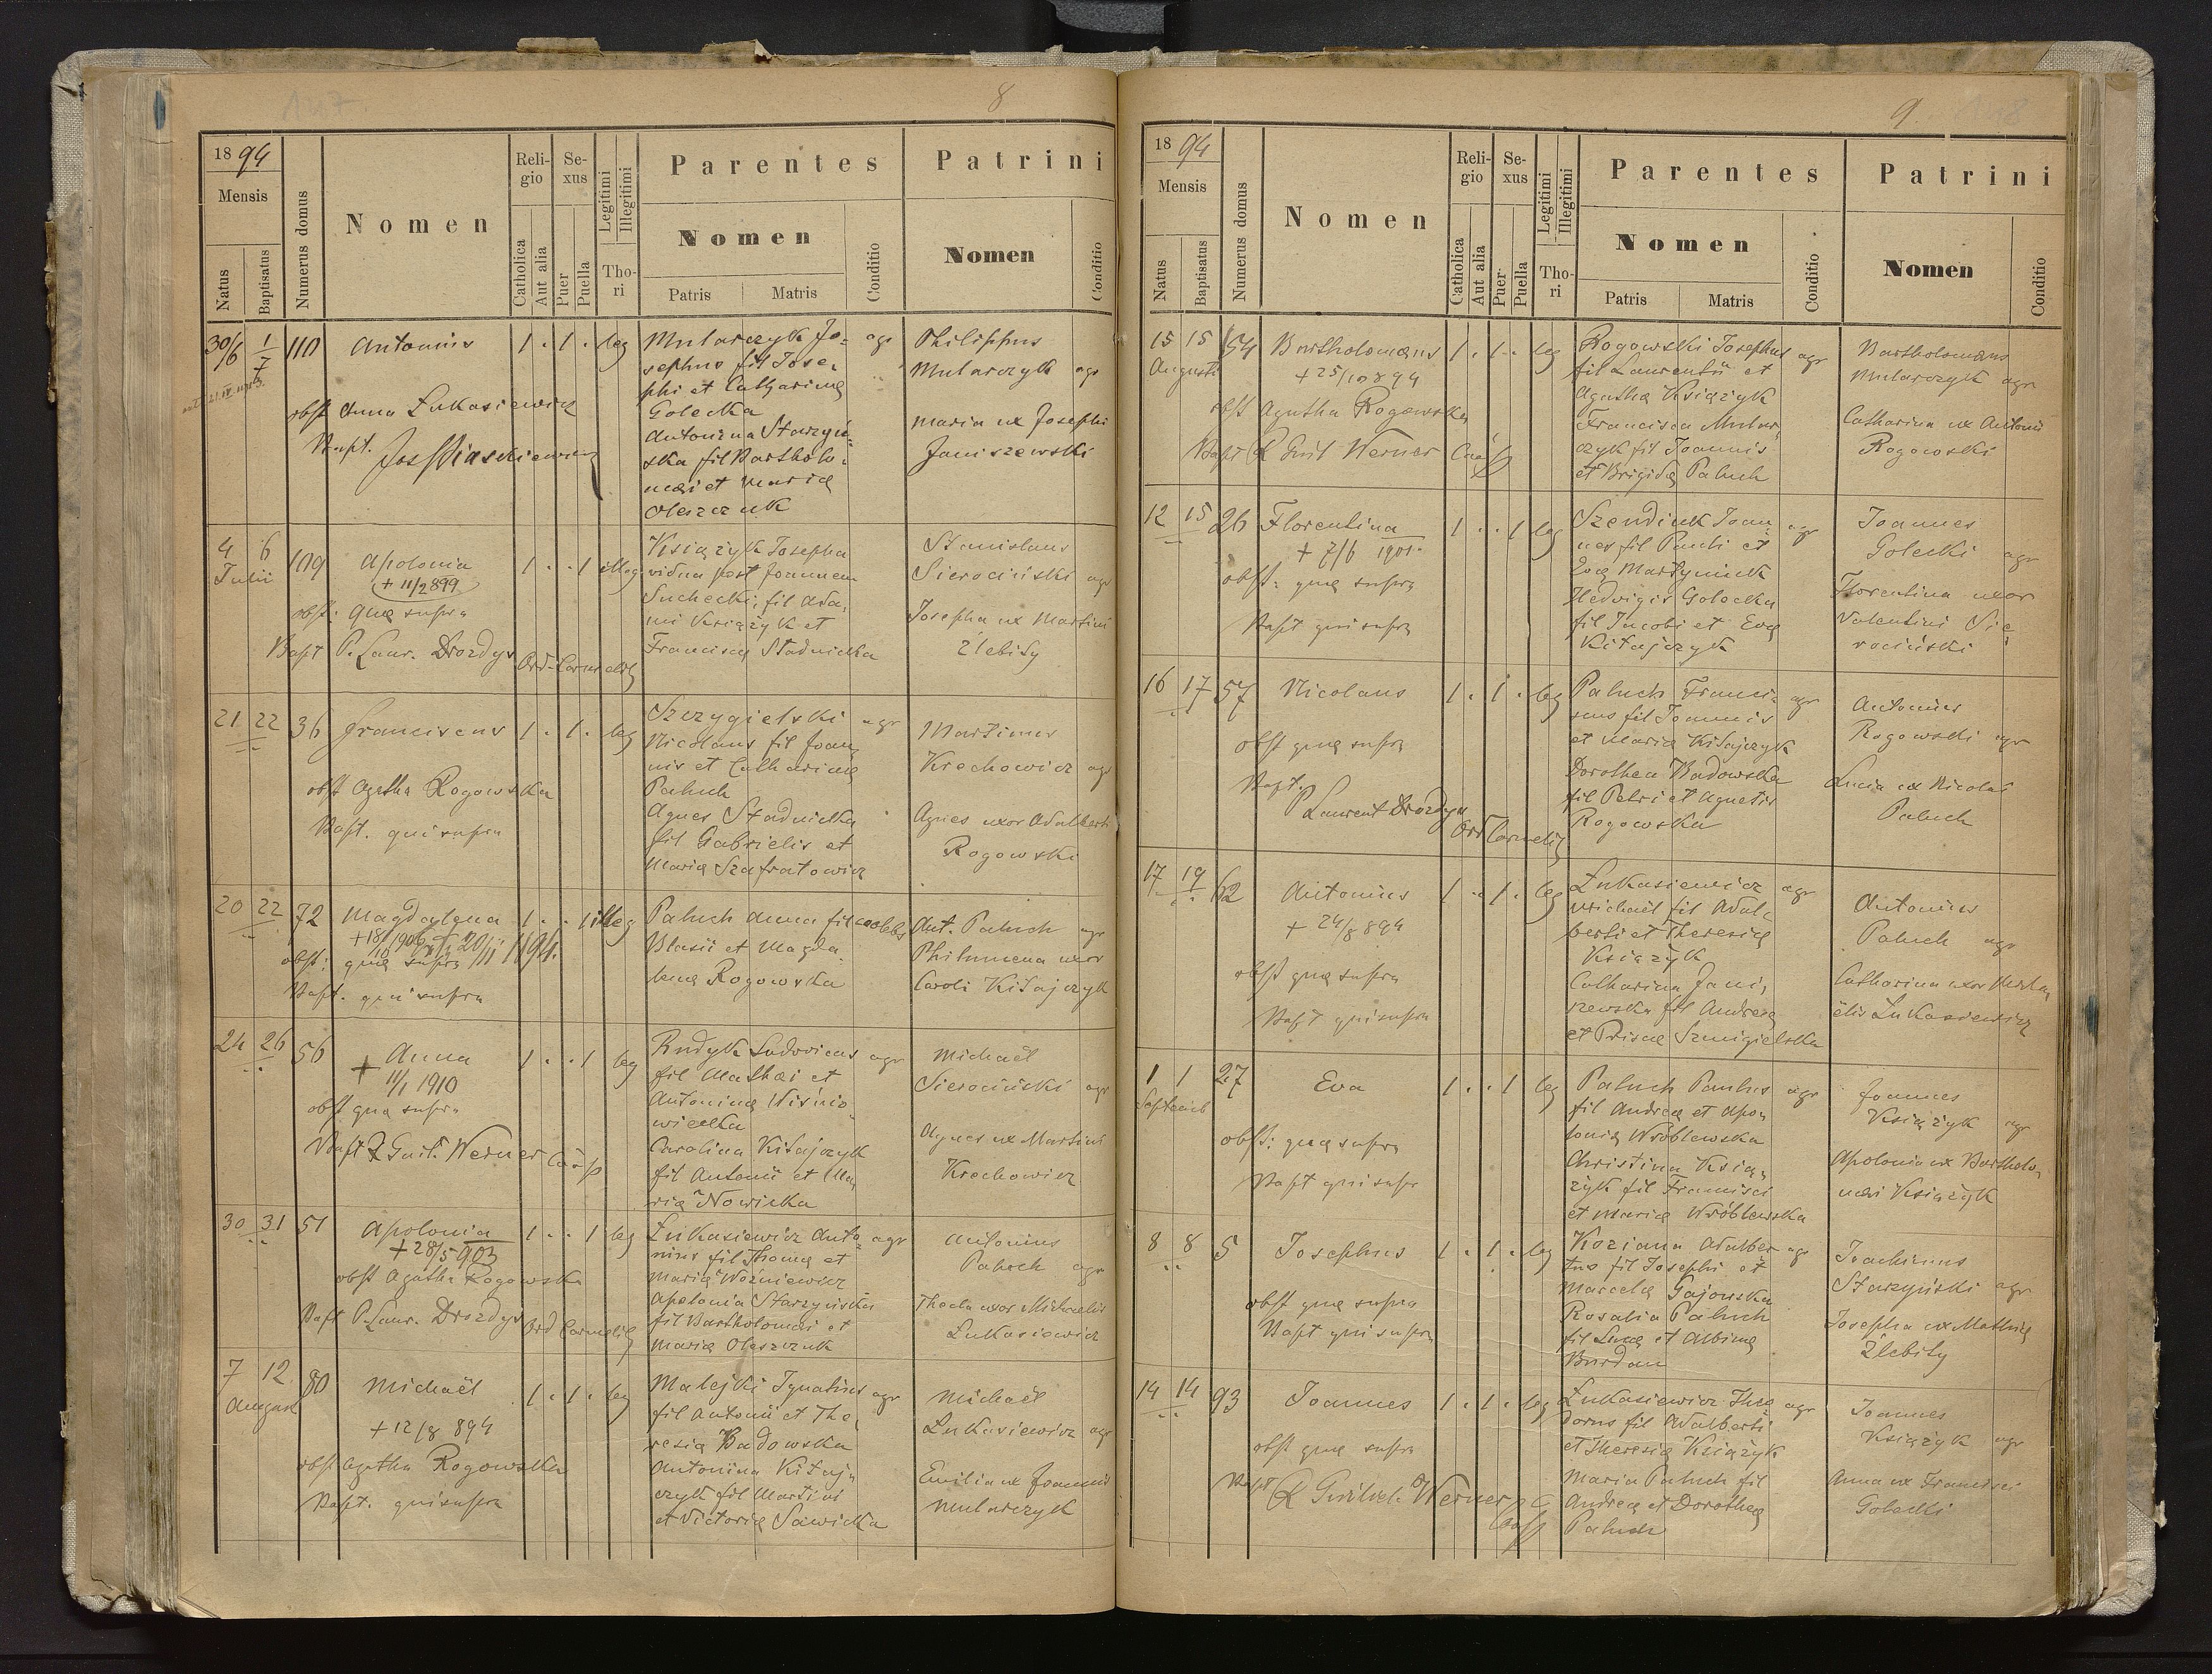 8
1894
Mensis
Natus
Baptisatus
Numerus domus
Nomen
Religio
Catholica
Aut alia
Sexus
Puer
Puella
Legitimi
Illegitimi
Thori
Parentes
Nomen
Patris
Matris
Conditio
Patrini
Nomen
Conditio
30/6 1/7 110 Antonius 1 . 1 . leg
obst Anna Łukasiewicz
Bapt.
Mularczyk Jo-
sephus fil Jose-
phi et Catharinę
Golecka
Antonina Starzyń-
ska fil Bartholo-
męi et Marię
Oleszczuk
agr
Philippus
Mularczyk agr
Maria ux Josephi
Janiszewski
4 6 109 Apolonia 1 . . 1 illeg
Julii
+ 11/2 899
obst: quę supra
Bapt P. Laur. Drozdyx Ord.
Książyk Josepha
vidua post Joannem
Suchecki, fil Ada-
mi Książyk et
Franciscę Stadnicka
Stanislaus
Sierociński agr
Josepha ux Martini
Żlebity
21 22 36 Franciscus 1 . 1 . leg
obst Agatha Rogowska
Bapt. qui supra
Szczygielski agr
Nicolaus fil Joan-
nis et Catharinę
Paluch
Agnes Stadnicka
fil Gabrielis et
Marię Szafratowicz
Martinus
Krechowicz agr
Agnes uxor Adalberti
Rogowski
20 22 72 Magdalena 1 . . 1 illeg
obst: quę supra
Bapt. qui supra
Paluch Anna fil
Blasii et Magda-
lenę Rogowska
Ant. Paluch agr
Philumena uxor
Caroli Kitajczyk
24 26 56 Anna 1 . . 1 leg
+ 11/1 1910
obst quę supra
Bapt X Guil. Werner
Rudyk Ludovicus agr
fil Mathęi et
Antoninę Wiśnio-
wiecka
Carolina Kitajczyk
fil Antonii et Ma-
rię Nowicka
Michaël
Sierociński agr
Agnes ux Martini
Krechowicz
30 31 51 Apolonia 1 . . 1 leg
+ 28/5 903
obst Agatha Rogowska
Bapt P. Laur. Drozdyx Ord Carmelit
Łukasiewicz Anto- agr
nius fil Thomę et
Marię Woźniewicz
Apolonia Starzyńska
fil Bartholomęi et
Marię Oleszczuk
Antonius
Paluch agr
Thecla uxor Michaelis
Łukasiewicz
7 12 80 Michaël 1 . 1 . leg
August
+ 12/8 894
obst Agatha Rogowska
Bapt. qui supra
Malejki Ignatius agr
fil Antonii et The-
resię Badowska
Antonina Kitaj-
czyk fil Martini
et Victorię Sawicka
Michaël
Łukasiewicz agr
Emilia ux Joannis
Mularczyk
9
1894
Mensis
Natus
Baptisatus
Numerus domus
Nomen
Religio
Catholica
Aut alia
Sexus
Puer
Puella
Legitimi
Illegitimi
Thori
Parentes
Nomen
Patris
Matris
Conditio
Patrini
Nomen
Conditio
15 15 54 Bartholomęus 1 . 1 . leg
Augusti
+ 25/10 894
obst Agatha Rogowska
Bapt X Guil Werner
Rogowski Josephus agr
fil Laurentii et
Agathę Książyk
Francisca Mular-
czyk fil Joannis
et Brigidę Paluch
Bartholomęus
Mularczyk agr
Catharina ux Antonii
Rogowski
12 15 26 Florentina 1 . . 1 leg
+ 7/6 1901.
obst: quę supra
Bapt qui supra
Szendiuk Joan- agr
nes fil Pauli et
Evę Martyniuk
Hedvigis Golecka
fil Jacobi et Evę
Kitajczyk
Joannes
Golecki agr
Florentina uxor
Valentini Sie-
rociński
16 17 57 Nicolaus 1 . 1 . leg
obst quę supra
Bapt.
P Laurent Drozdyx
Ord Carmelit
Paluch Franci- agr
scus fil Joannis
et Marię Kitajczyk
Dorothea Badowska
fil Petri et Agnetis
Rogowska
Antonius
Rogowski agr
Lucia ux Nicolai
Paluch
17 19 62 Antonius 1 . 1 . leg
+ 24/8 894
obst quę supra
Bapt qui supra
Łukasiewicz agr
Michaël fil Adal-
berti et Theresię
Książyk
Catharina Jani-
szewska fil Andreę
et Priscę Szmigielska
Antonius
Paluch agr
Catharina uxor Micha-
ëlis Łukasiewicz
1 1 27 Eva 1 . . 1 leg
Septemb
obst: quę supra
Bapt qui supr
Paluch Paulus agr
fil Andreę et Apo-
lonię Wróblewska
Christina Książ-
żyk fil Francisci
et Marię Wróblewska
Joannes
Książyk agr
Apolonia ux Bartholo-
męi Książyk
8 8 5 Josephus 1 . 1 . leg
obst quę supra
Bapt qui supra
Koziana Adalber- agr
tus fil Josephi et
Marcelę Gajowska
Rosalia Paluch
fil Lucę et Albinę
Burdan
Joachimus
Starzyński agr
Josepha ux Mathię
Żlebity
14 14 93 Joannes 1 . 1 . leg
obst quę supra
Bapt X Guilielm Werner
Łukasiewicz Theo- agr
dorus fil Adalberti
et Theresię Książyk
Maria Paluch fil
Andreę et Dorotheę
Paluch
Joannes
Książyk agr
Anna ux Francisci
Golecki